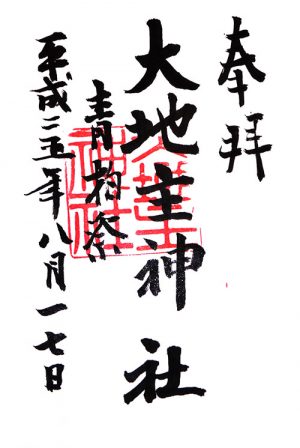 奉拝
大地主神社
青柏祭
平成二五年八月一七日